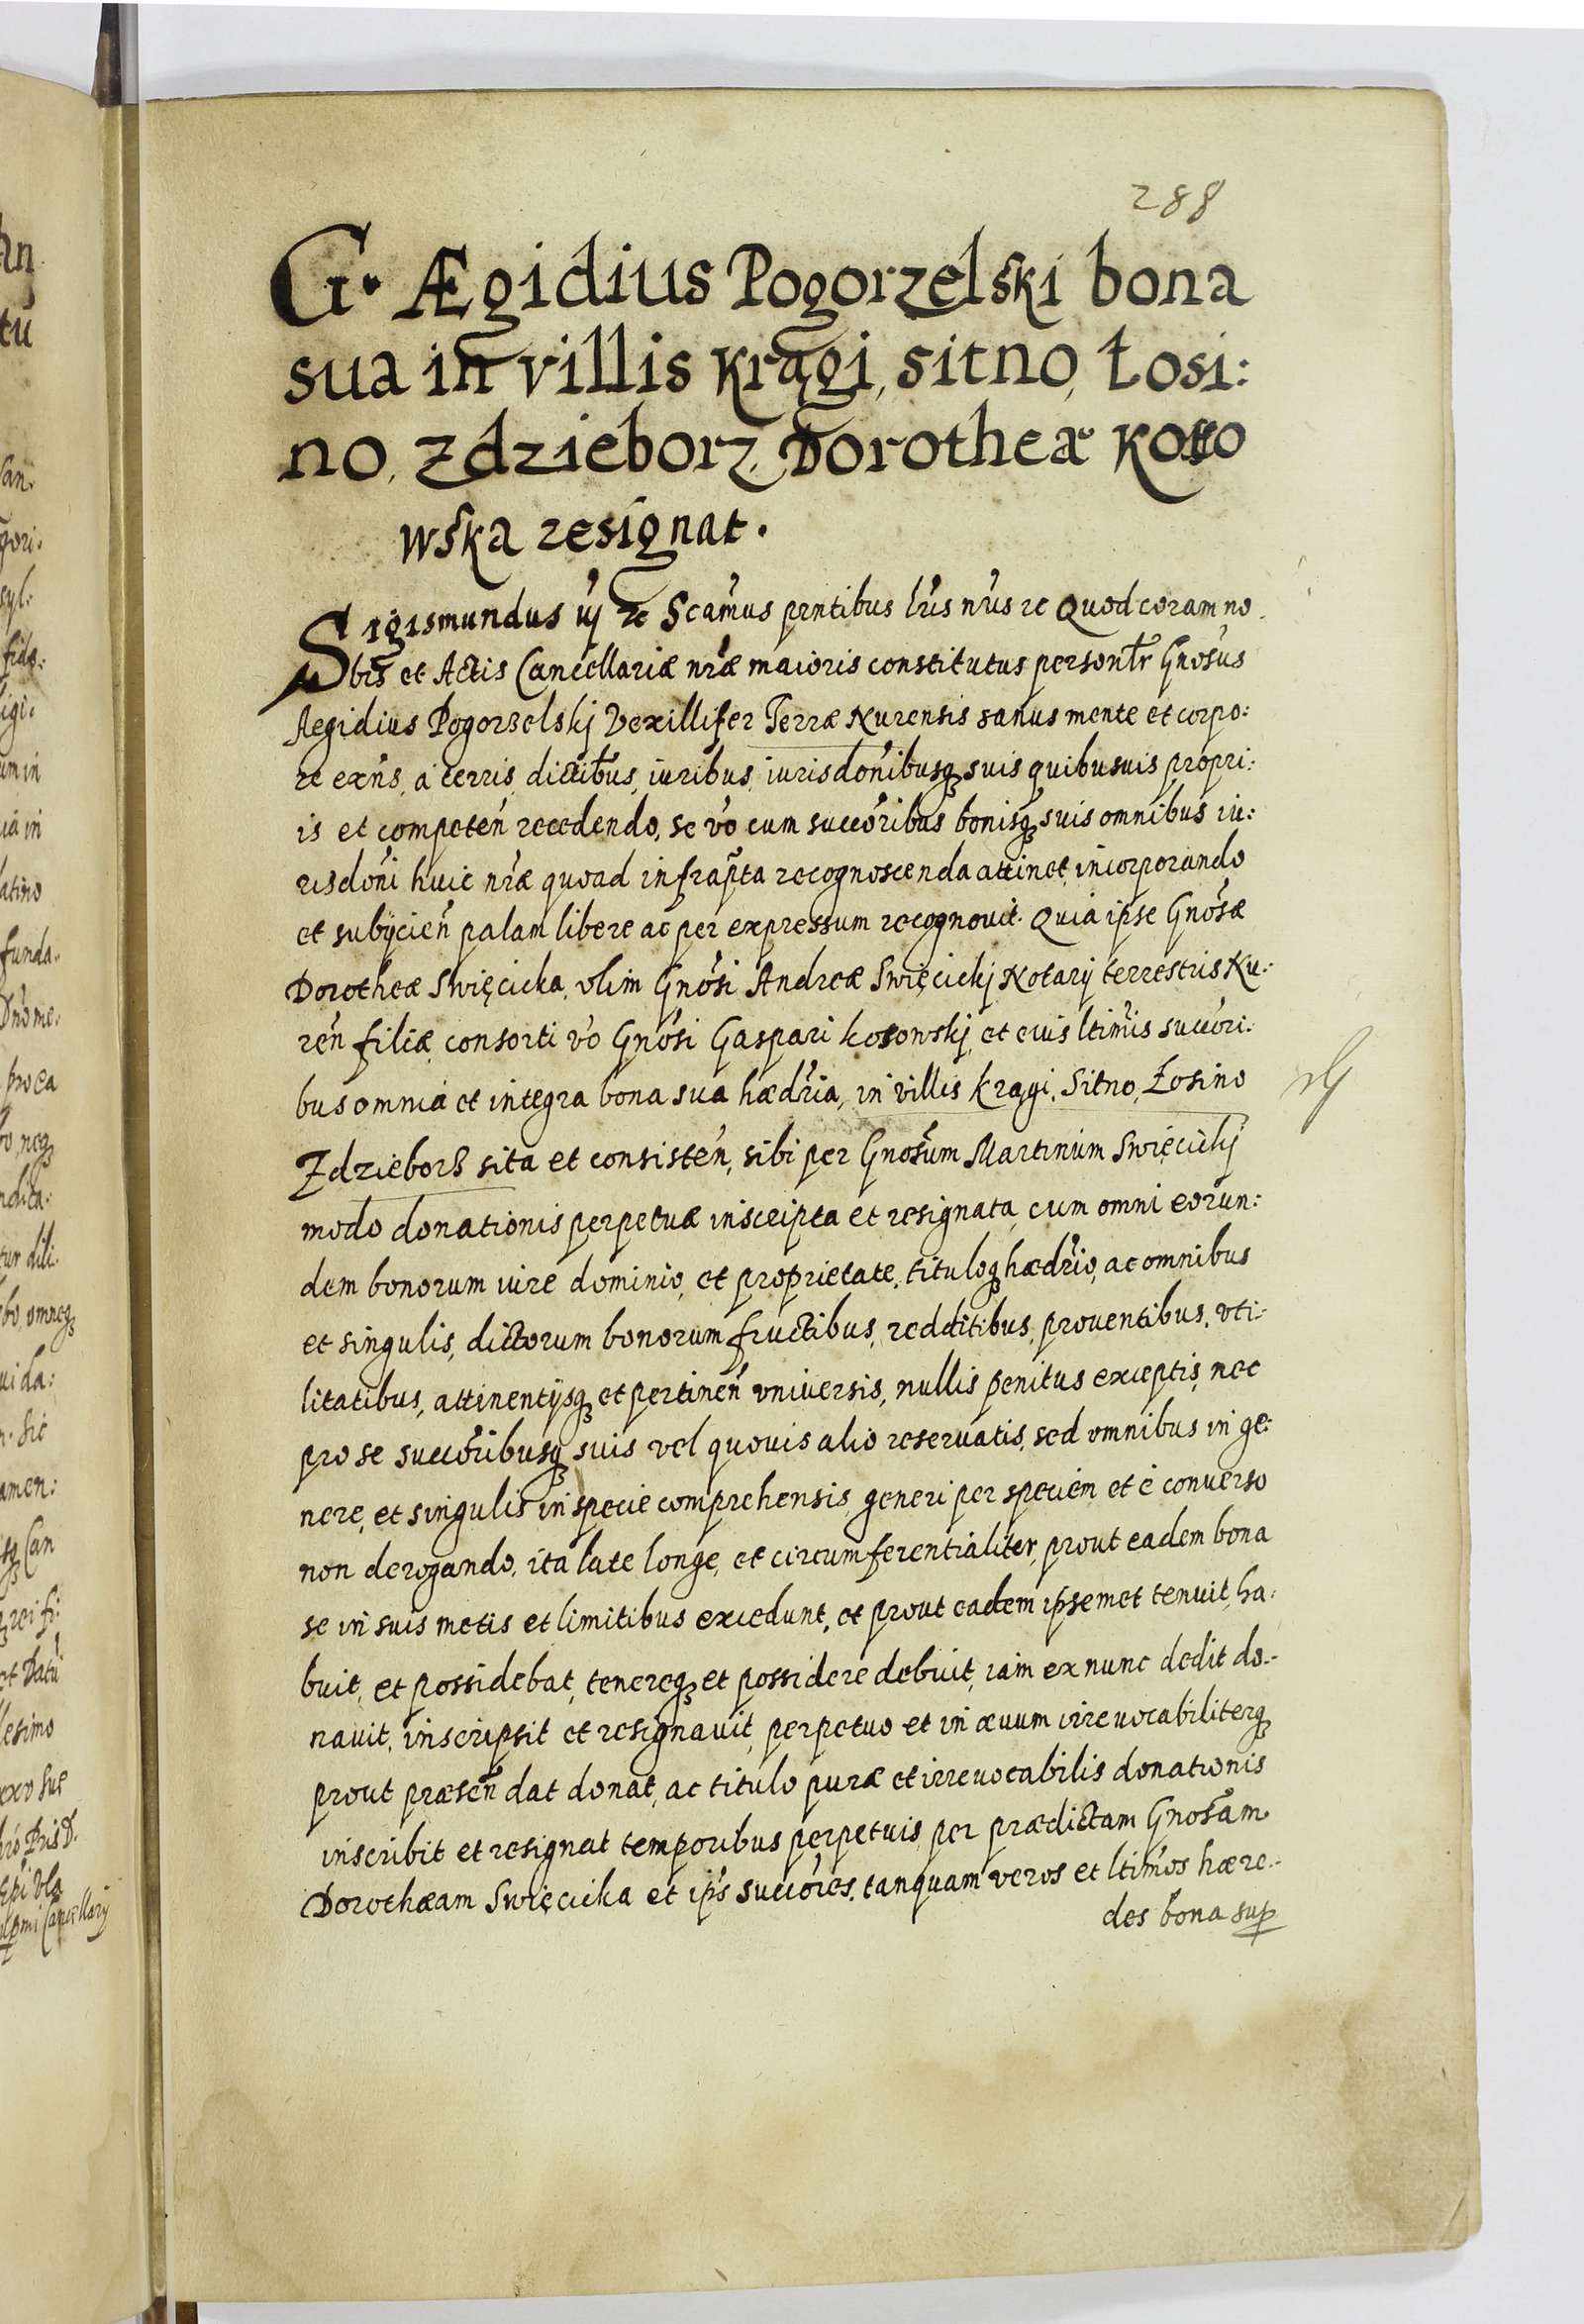 288
G. Ægidius Pogorzelski bona
sua in villis Krągi, Sitno, Łosi:
no, Zdzieborz, Dorotheæ Koso
wska resignat.
Sigismundus iij rc Scam̃us pn̄tibus lr̃is nr̃is rc Quod coram no
bis et Actis Cancellariæ nr̃æ maioris constitutus personlr̃ Gnosus
Aegidius Pogorzelskj Vexillifer Terræ Nurensis sanus mente et corpo:
re exn̄s, a terris, dictib̃us, iuribus, iurisdon̄ibusq̃ suis quibusuis propri:
is et competen̄ recedendo, se vo cum succoribus bonisq̃ suis omnibus iu:
risdon̄i huic nr̃æ quoad infrap̃ta recognoscenda attinet, incorporando
et subijcien̄ palam libere ac per expressum recognouit. Quia ipse Gnosæ
Dorotheæ Swięcicka, olim Gnosi Andreæ Swięcickj Notarij terrestris Nu:
ren̄ filiæ, consorti vo Gnosi Gaspari Kosowskj, et eius ltimis succori:
bus omnia et integra bona sua hædria, in villis Krągi, Sitno, Łosino
Zdzieborz sita et consisten̄, sibi per Gnosum Martinum Swięcickj
modo donationis perpetuæ inscripta et resignata, cum omni eorun:
dem bonorum iure dominio, et proprietate, tituloq̃ hædrio, ac omnibus
et singulis, dictorum bonorum fructibus, redditibus, prouentibus, vti:
litatibus, attinentijsq̃ et pertinen̄ vniuersis, nullis penitus exceptis, nec
pro se succoribusq̃ suis vel quouis alio reseruatis, sed omnibus in ge:
nere, et singulis in specie comprehensis, generi per speciem et è conuerso
non derogando, ita late longe, et circumferentialiter, prout eadem bona
se in suis metis et limitibus excedunt, et prout eadem ipsemet tenuit, ha:
buit, et possidebat, tenereq̃ et possidere debuit, iam ex nunc dedit do:
nauit, inscripsit et resignauit, perpetuo et in æuum irreuocabiliterq̃
prout præsen̄ dat donat, ac titulo puræ et irreuocabilis donationis
inscribit et resignat temporibus perpetuis, per prædictam Gnosam
Dorothæam Swięcicka et ip̄s succores, tanquam veros et ltimos hære:
des bona sup